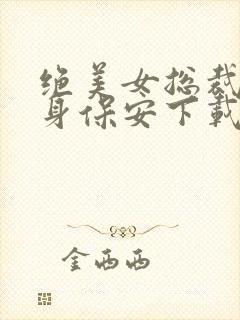 绝美女总裁
身保安下载
金西西